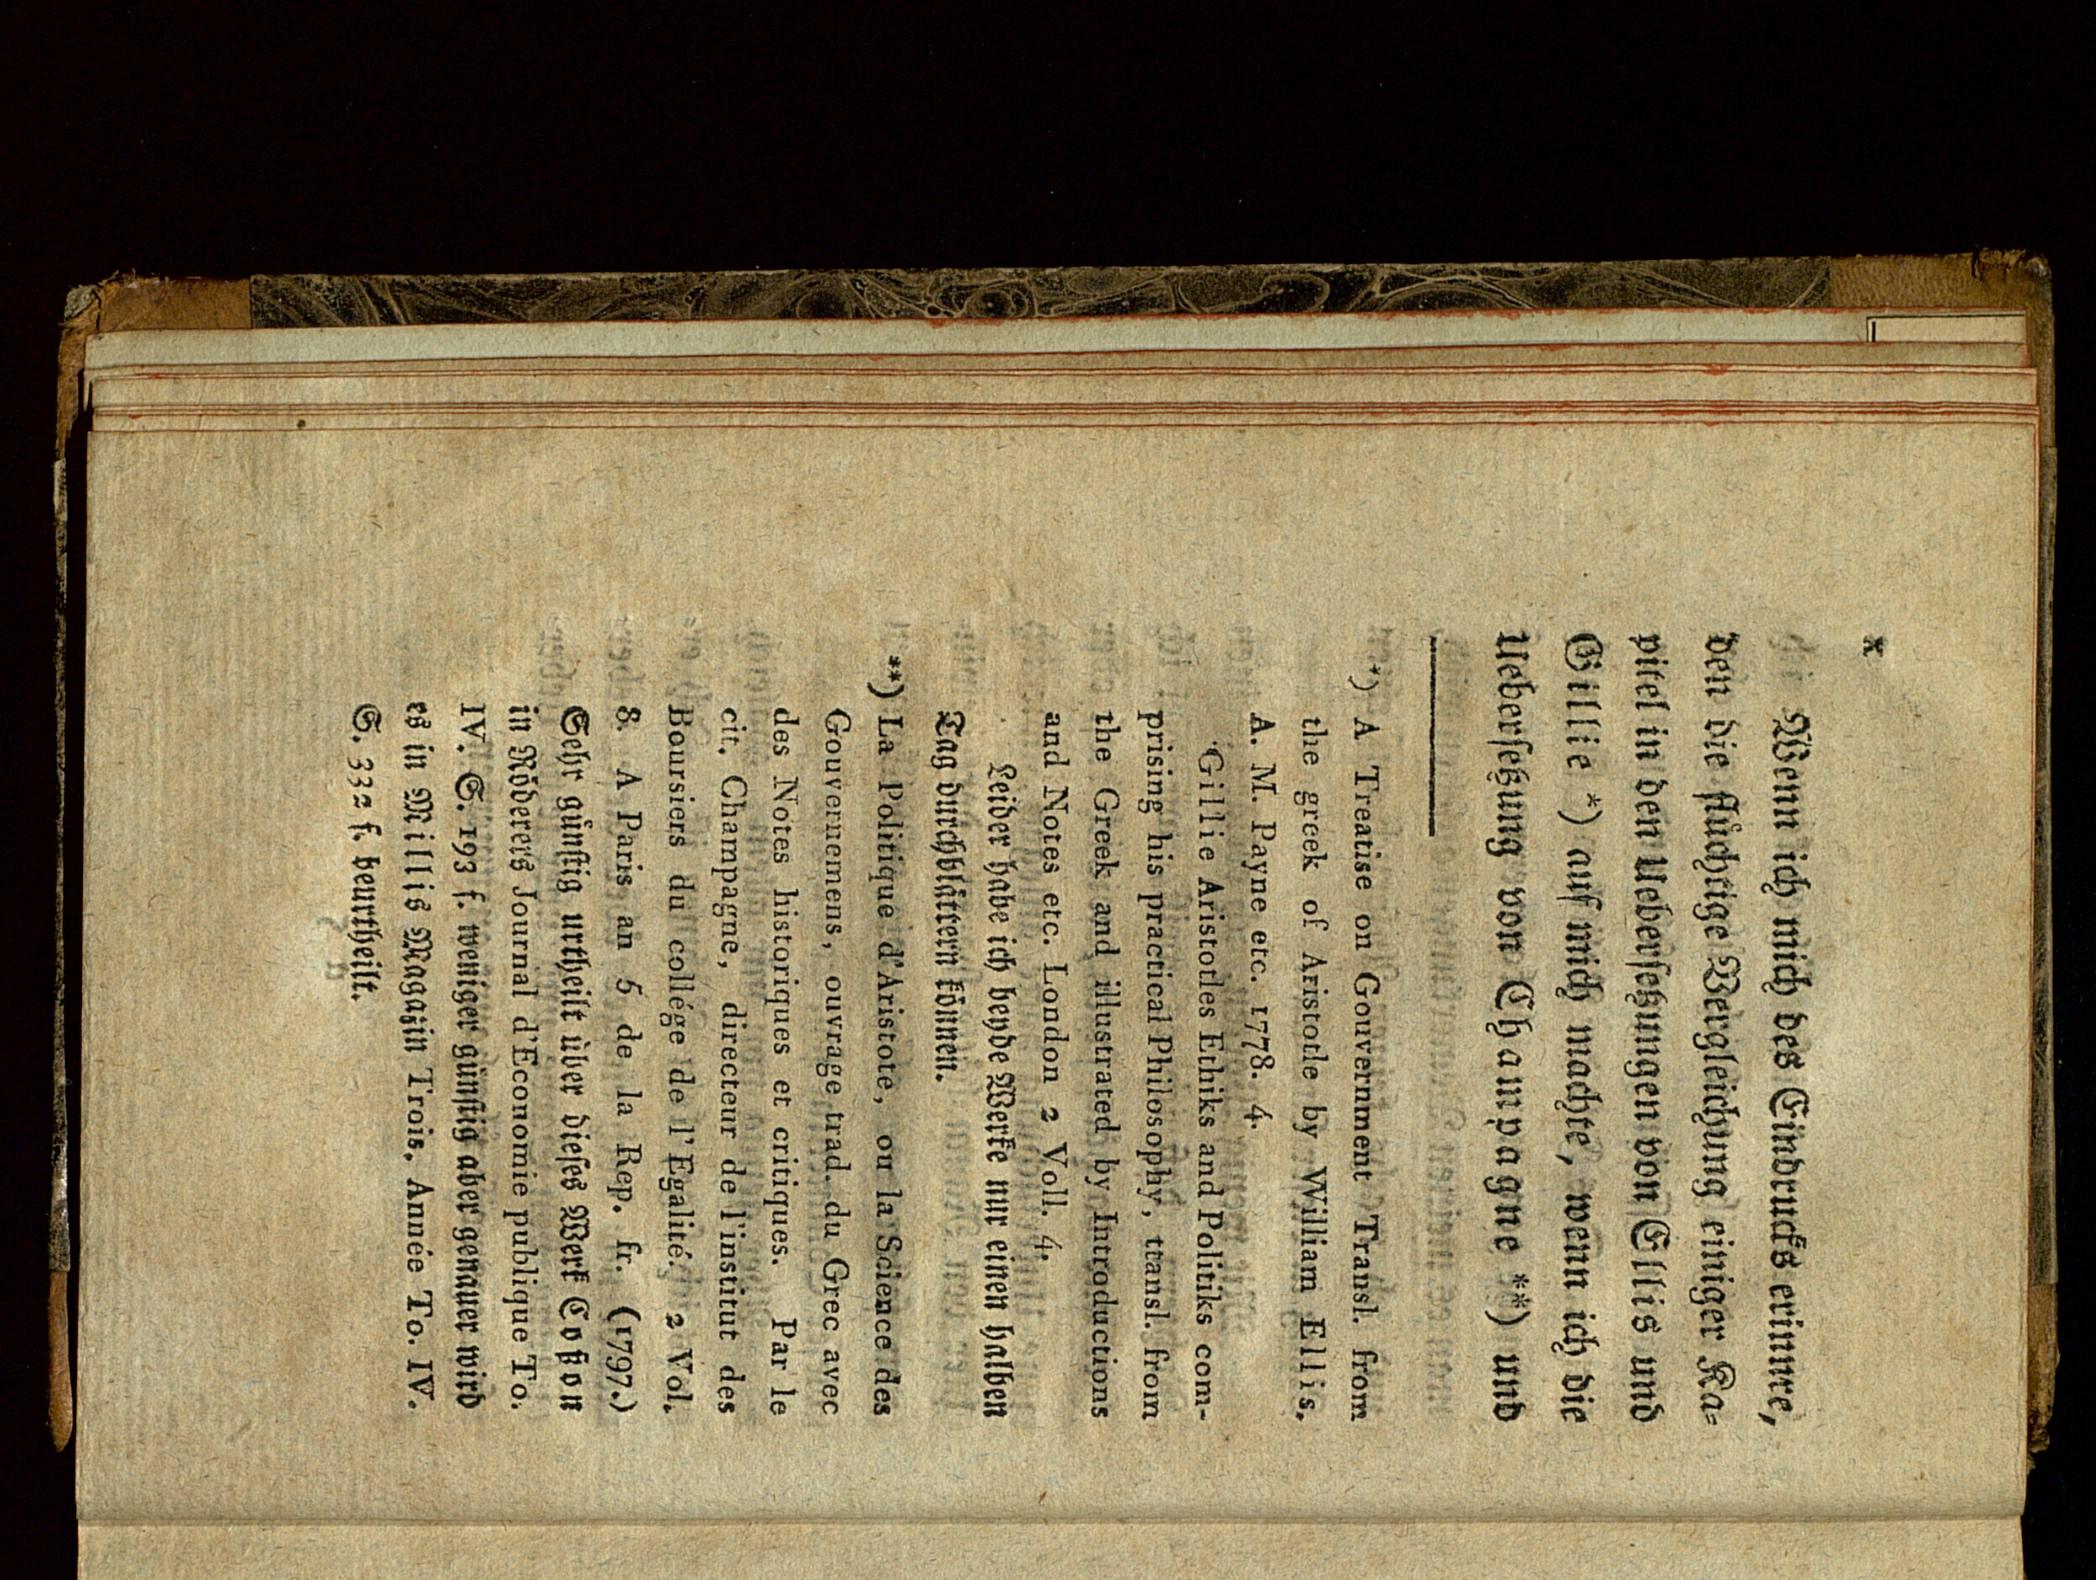 x
Wenn ich mich des Eindrucks erinnre,
den die flüchtige Vergleichung einiger Ka-
pitel in den Uebersetzungen von Ellis und
Gillie *) auf mich machte, wenn ich die
Uebersetzung von Champagne **) und
*) A Treatise on Gouvernment Transl. from
the greek of Aristotle by William Ellis.
A. M. Payne etc. 1778. 4.
Gillie Aristotles Ethiks and Politiks com-
prising his practical Philosophy, ttansl. from
the Greek and illustrated by Introductions
and Notes etc. London 2 Voll. 4.
Leider habe ich beyde Werke nur einen halben
Tag durchblättern können.
**) La Politique d'Aristote, ou la Science des
Gouvernemens, ouvrage trad. du Grec avec
des Notes historiques et critiques. Par le
cit. Champagne, directeur de l'institut des
Boursiers du collége de l'Egalité. 2 Vol.
8. A Paris an 5 de la Rep. fr. (1797.)
Sehr günstig urtheilt über dieses Werk Toßon
in Röderers Journal d'Economie publique To.
IV. S. 193 f. weniger günstig aber genauer wird
es in Millis Magazin Trois. Année To. IV.
S. 332 f. beurtheilt.